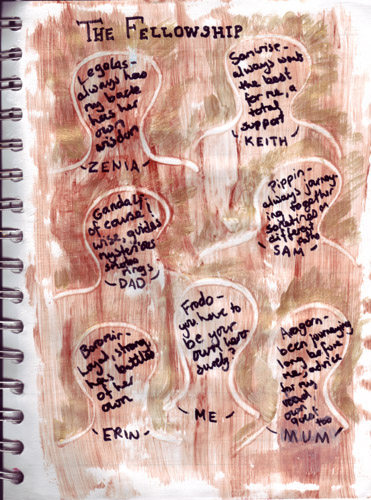 THE FELLOWSHIP
Legolas-
always has
my back
has her
own
wisdom
-ZENIA-
Samwise-
always wants
the best
for me, a
total
support
-KEITH-
Gandalf
of course!
wise, guides
mysterious
smoke
rings
-DAD-
Pippin-
always journey
ing together
sometimes on
different
paths
-SAM-
Frodo-
you have to
be your
own hero
surely?
-ME-
Boromir-
loyal, strong
has battles
of her
own
-ERIN-
Aragorn-
been journeying
long before
me, advice
for my
road
own
quest too
-MUM-